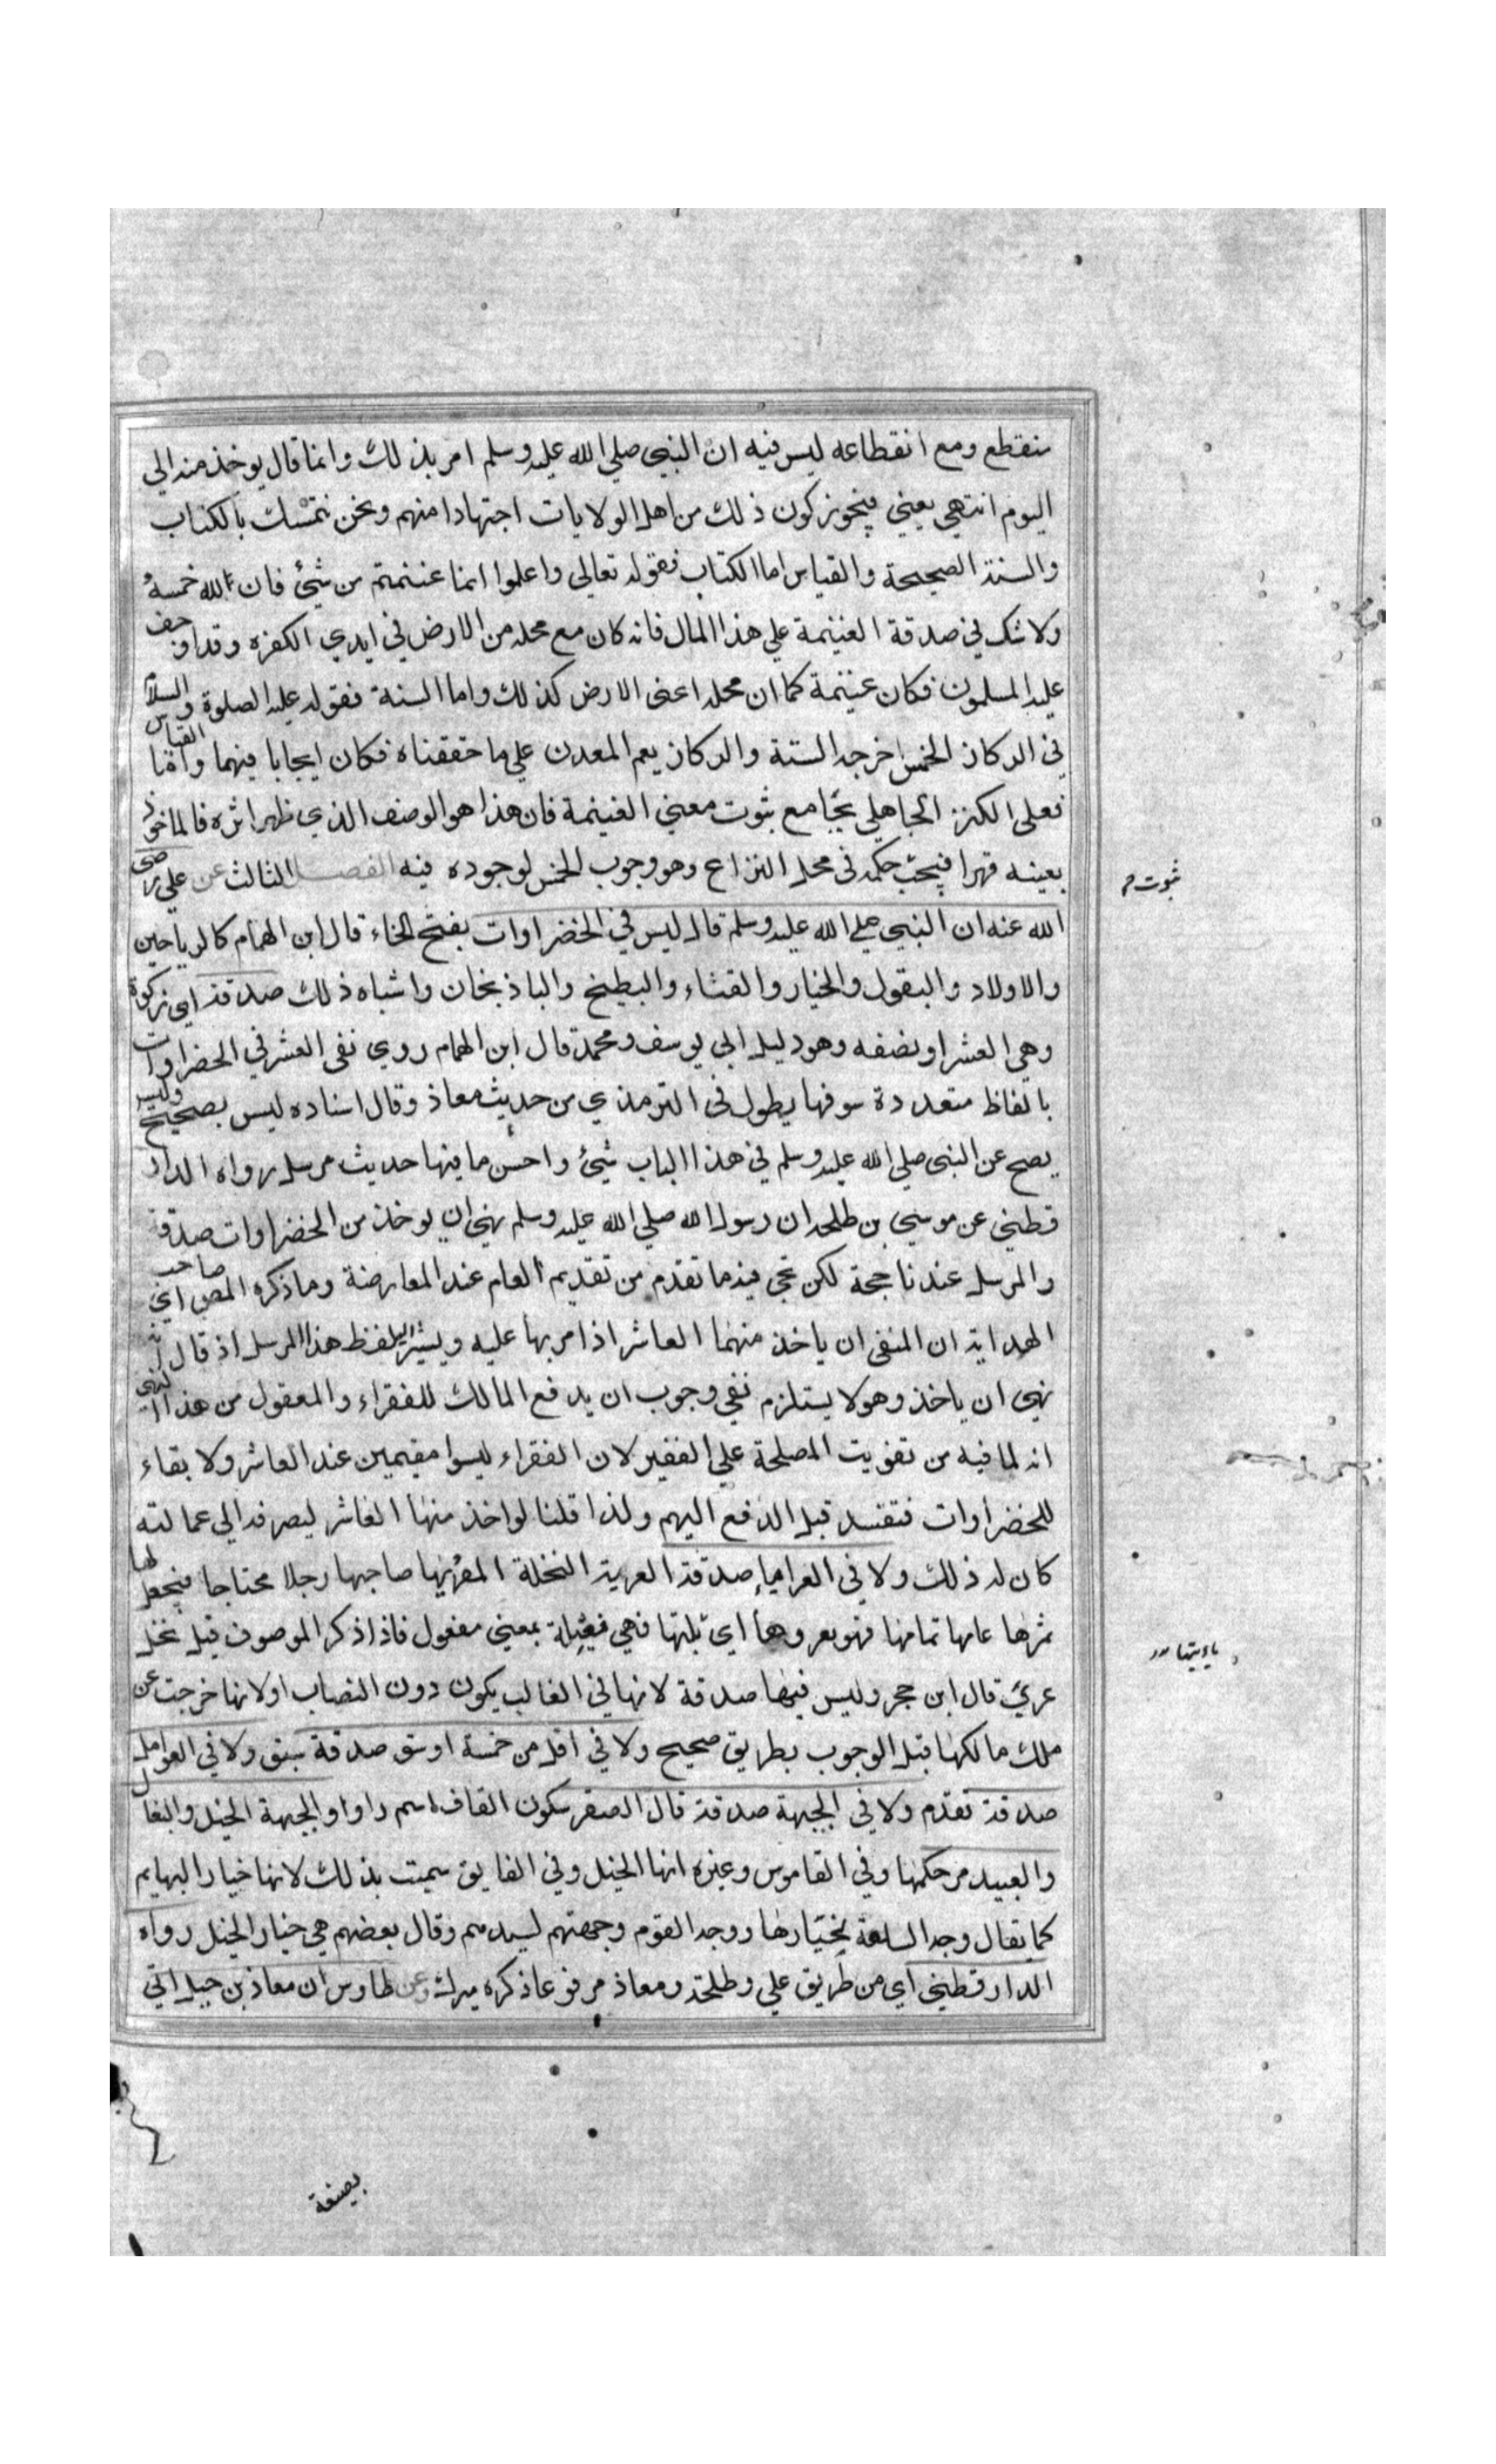 منقطع ومع انقطاعه ليس فيه ان النبي صلي الله عليه وسلم امر بذلك وانما قال يوخذ منه الي
اليوم انتهي يعني فيجوز كون ذلك من اهل الولايات اجتهادا منهم ونحن نتمسك بالكتاب
والسنة الصحيحة والقياس اما الكتاب فقوله تعالي واعلموا انما غنمتم من شيئ فان لله خمسه
ولا شك في صدقة الغنيمة علي هذا المال فانه كان مع محله من الارض في ايدي الكفرة وقد اوجف
عليه المسلمون فكان غنيمة كما ان محله اعني الارض كذلك واما السنة فقوله عليه الصلوة والسلام
في الركاز الخمس اخرجه الستة والركاز يعم المعدن علي ما حققناه فكان ايجابا فيهما واما القياس
فعلي الكنز الجاهلي بجامع ثبوت معني الغنيمة فان هذا هو الوصف الذي ظهر اثره فالماخوذ
بعينه قهرا فيجب حكمه في محل النزاع وهو وجوب الخمس لوجوده فيه الفصل الثالث عن علي رضي
ثبوت
الله عنه ان النبي صلي الله عليه وسلم قال ليس في الخضراوات بفتح الخاء قال ابن الهمام كالرياحين
والاولاد والبقول والخيار والقثاء والبطيخ والباذنجان واشباه ذلك صدقة اي زكوة
وهي العشر او نصفه وهو دليل ابي يوسف ومحمد قال ابن الهمام روي نفي العشر في الخضراوات
بالفاظ متعددة سوقها يطول في الترمذي من حديث معاذ وقال اسناده ليس بصحيح وليس
يصح عن النبي صلي الله عليه وسلم في هذا الباب شيئ واحسن ما فيها حديث مرسل رواه الدار
قطني عن موسي بن طلحه ان رسول الله صلي الله عليه وسلم نهي ان يوخذ من الخضراوات صدقة
والمرسل عندنا حجة لكن يجي فيه ما تقدم من تقديم العام عند المعارضة وما ذكره المص اي صاحب
الهداية ان المنفي ان ياخذ منهما العاشر اذا مر بها عليه ويشير اليه لفظ هذا المرسل اذ قال
نهي ان ياخذ وهو لا يستلزم نفي وجوب ان يدفع المالك للفقراء والمعقول من هذا النهي
انه لما فيه من تفويت المصلحة علي الفقير لان الفقراء ليسوا مقيمين عند العاشر ولا بقاء
للخضراوات فتفسد قبل الدفع اليهم ولذا قلنا لو اخذ منها العاشر ليصرفه الي عمالته
كان له ذلك ولا في العرايا صدقة العرية النخلة المعريها صاحبها رجلا محتاجا فيجعل لها
ثمرها عامها تمامها فهو يعروها اي ثلبتها فهي فعيلة بمعني مفعول فاذا ذكر الموصوف قيل نخل
عري قال ابن حجر وليس فيها صدقة لانها في الغالب يكون دون النصاب او لانها خرجت عن
ملك مالكها قبل الوجوب بطريق صحيح ولا في اقل من خمسة اوسق صدقة سبق ولا في العوامل
صدقة تقدم ولا في الجبهة صدقة قال الصقر بسكون القاف اسم راو الجبهة الخيل والبغال
والعبيد مر حكمها وفي القاموس وغيره انها الخيل وفي الفايق سميت بذلك لانها خيار البهايم
كما يقال وجه السلعة لخيارها ووجه القوم وجبهتهم لسيدهم وقال بعضهم هي خيار الخيل رواه
الدارقطني اي من طريق علي وطلحة ومعاذ مرفوعا ذكره ميرك وعن طاوس ان معاذ بن جبل اتي